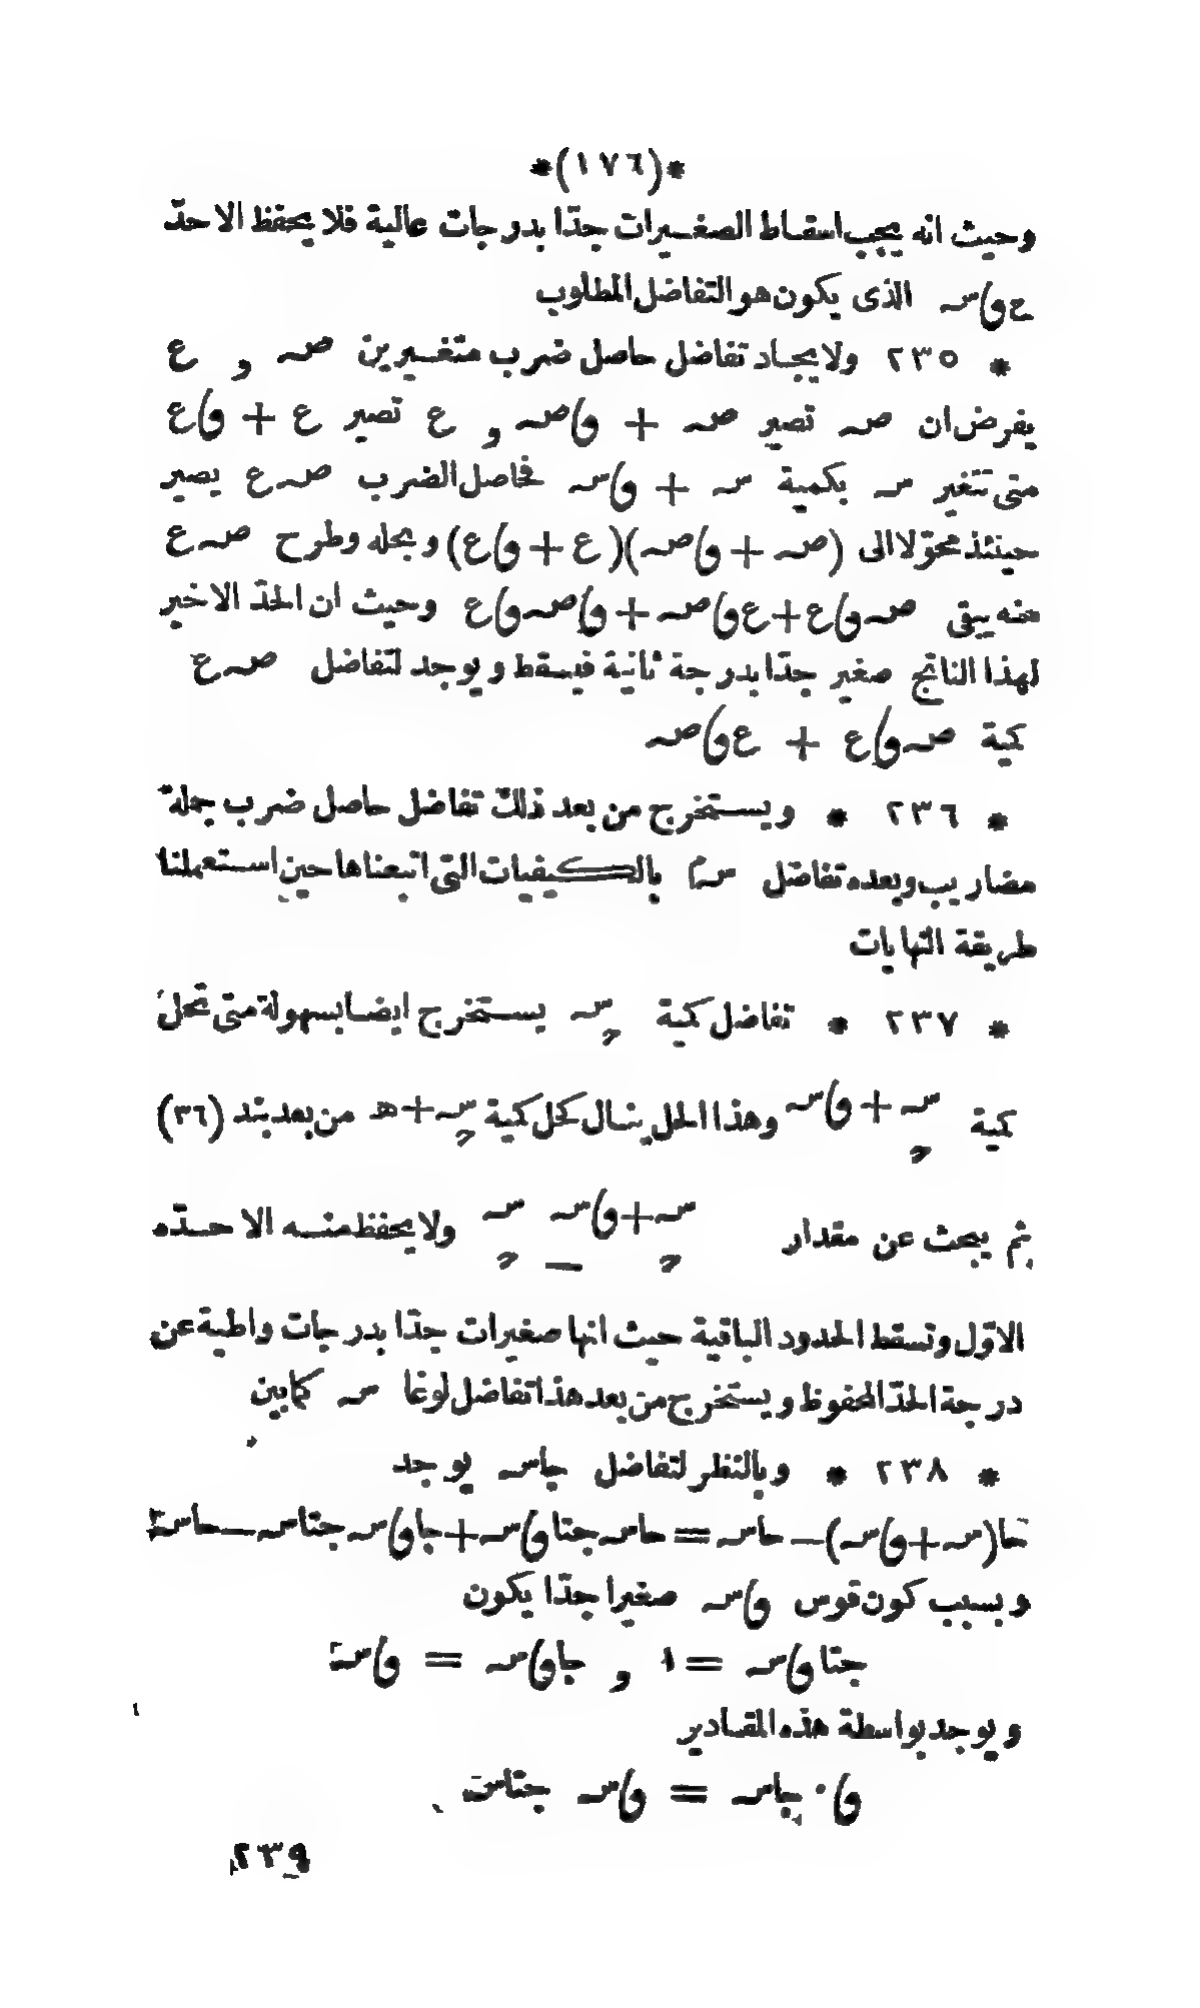 *(١٧٦)*
وحيث انه يجب اسقاط الصغيرات جدّا بدرجات عالية فلا يحفظ الاحدّ
ع ﻭ(س الذى يكون هو التفاضل المطلوب
* ٢٣٥ ولايجاد تفاضل حاصل ضرب متغيرين صہ و ع
يفرض ان صہ تصير صہ + ﻭ(صہ و ع تصير ع + ﻭ(ع
متى تتغير سہ بكمية سہ + ﻭ(سہ فحاصل الضرب صہ ع يصير
حينئذ محوّلا الى (صہ + ﻭ(صہ)(ع + ﻭ(ع) وبحله وطرح صہ ع
منه يبقى صہ ﻭ(ع + ع ﻭ(صہ + ﻭ(صہ ﻭ(ع وحيث ان الحدّ الاخير
لهذا الناتج صغير جدّا بدرجة ثانية فيسقط ويوجد لتفاضل صہ ع
كمية صہ ﻭ(ع + ع ﻭ(صہ
* ٢٣٦ * ويستخرج من بعد ذلك تفاضل حاصل ضرب جملة
مضاريب وبعده تفاضل سہم بالكيفيات التى اتبعناها حين استعملنا
طريقة النهايات
* ٢٣٧ * تفاضل كمية سہ يستخرج ايضا بسهولة متى تحل
كمية سہ + ﻭ(سہ وهذا الحل ينال كحل كمية سہ + ھ من بعد بند (٣٦)
ثم يبحث عن مقدار سہ + ﻭ(سہ — سہ ولا يحفظ منه الا حدّه
الاوّل وتسقط الحدود الباقية حيث انها صغيرات جدّا بدرجات واطية عن
درجة الحدّ المحفوظ ويستخرج من بعد هذا تفاضل لوغا سہ كما بين
* ٢٣٨ * وبالنظر لتفاضل جاسہ يوجد
حا(سہ + ﻭ(سہ) — حاسہ = حاسہ جتا ﻭ(سہ + جا ﻭ(سہ جتاسہ — حاسہ
وبسبب كون قوس ﻭ(سہ صغيرا جدّا يكون
جتا ﻭ(سہ = ١ و جا ﻭ(سہ = ﻭ(سہ
ويوجد بواسطة هذه المقادير
ﻭ( ٠ جاسہ = ﻭ(سہ جتاسہ
٢٣٩